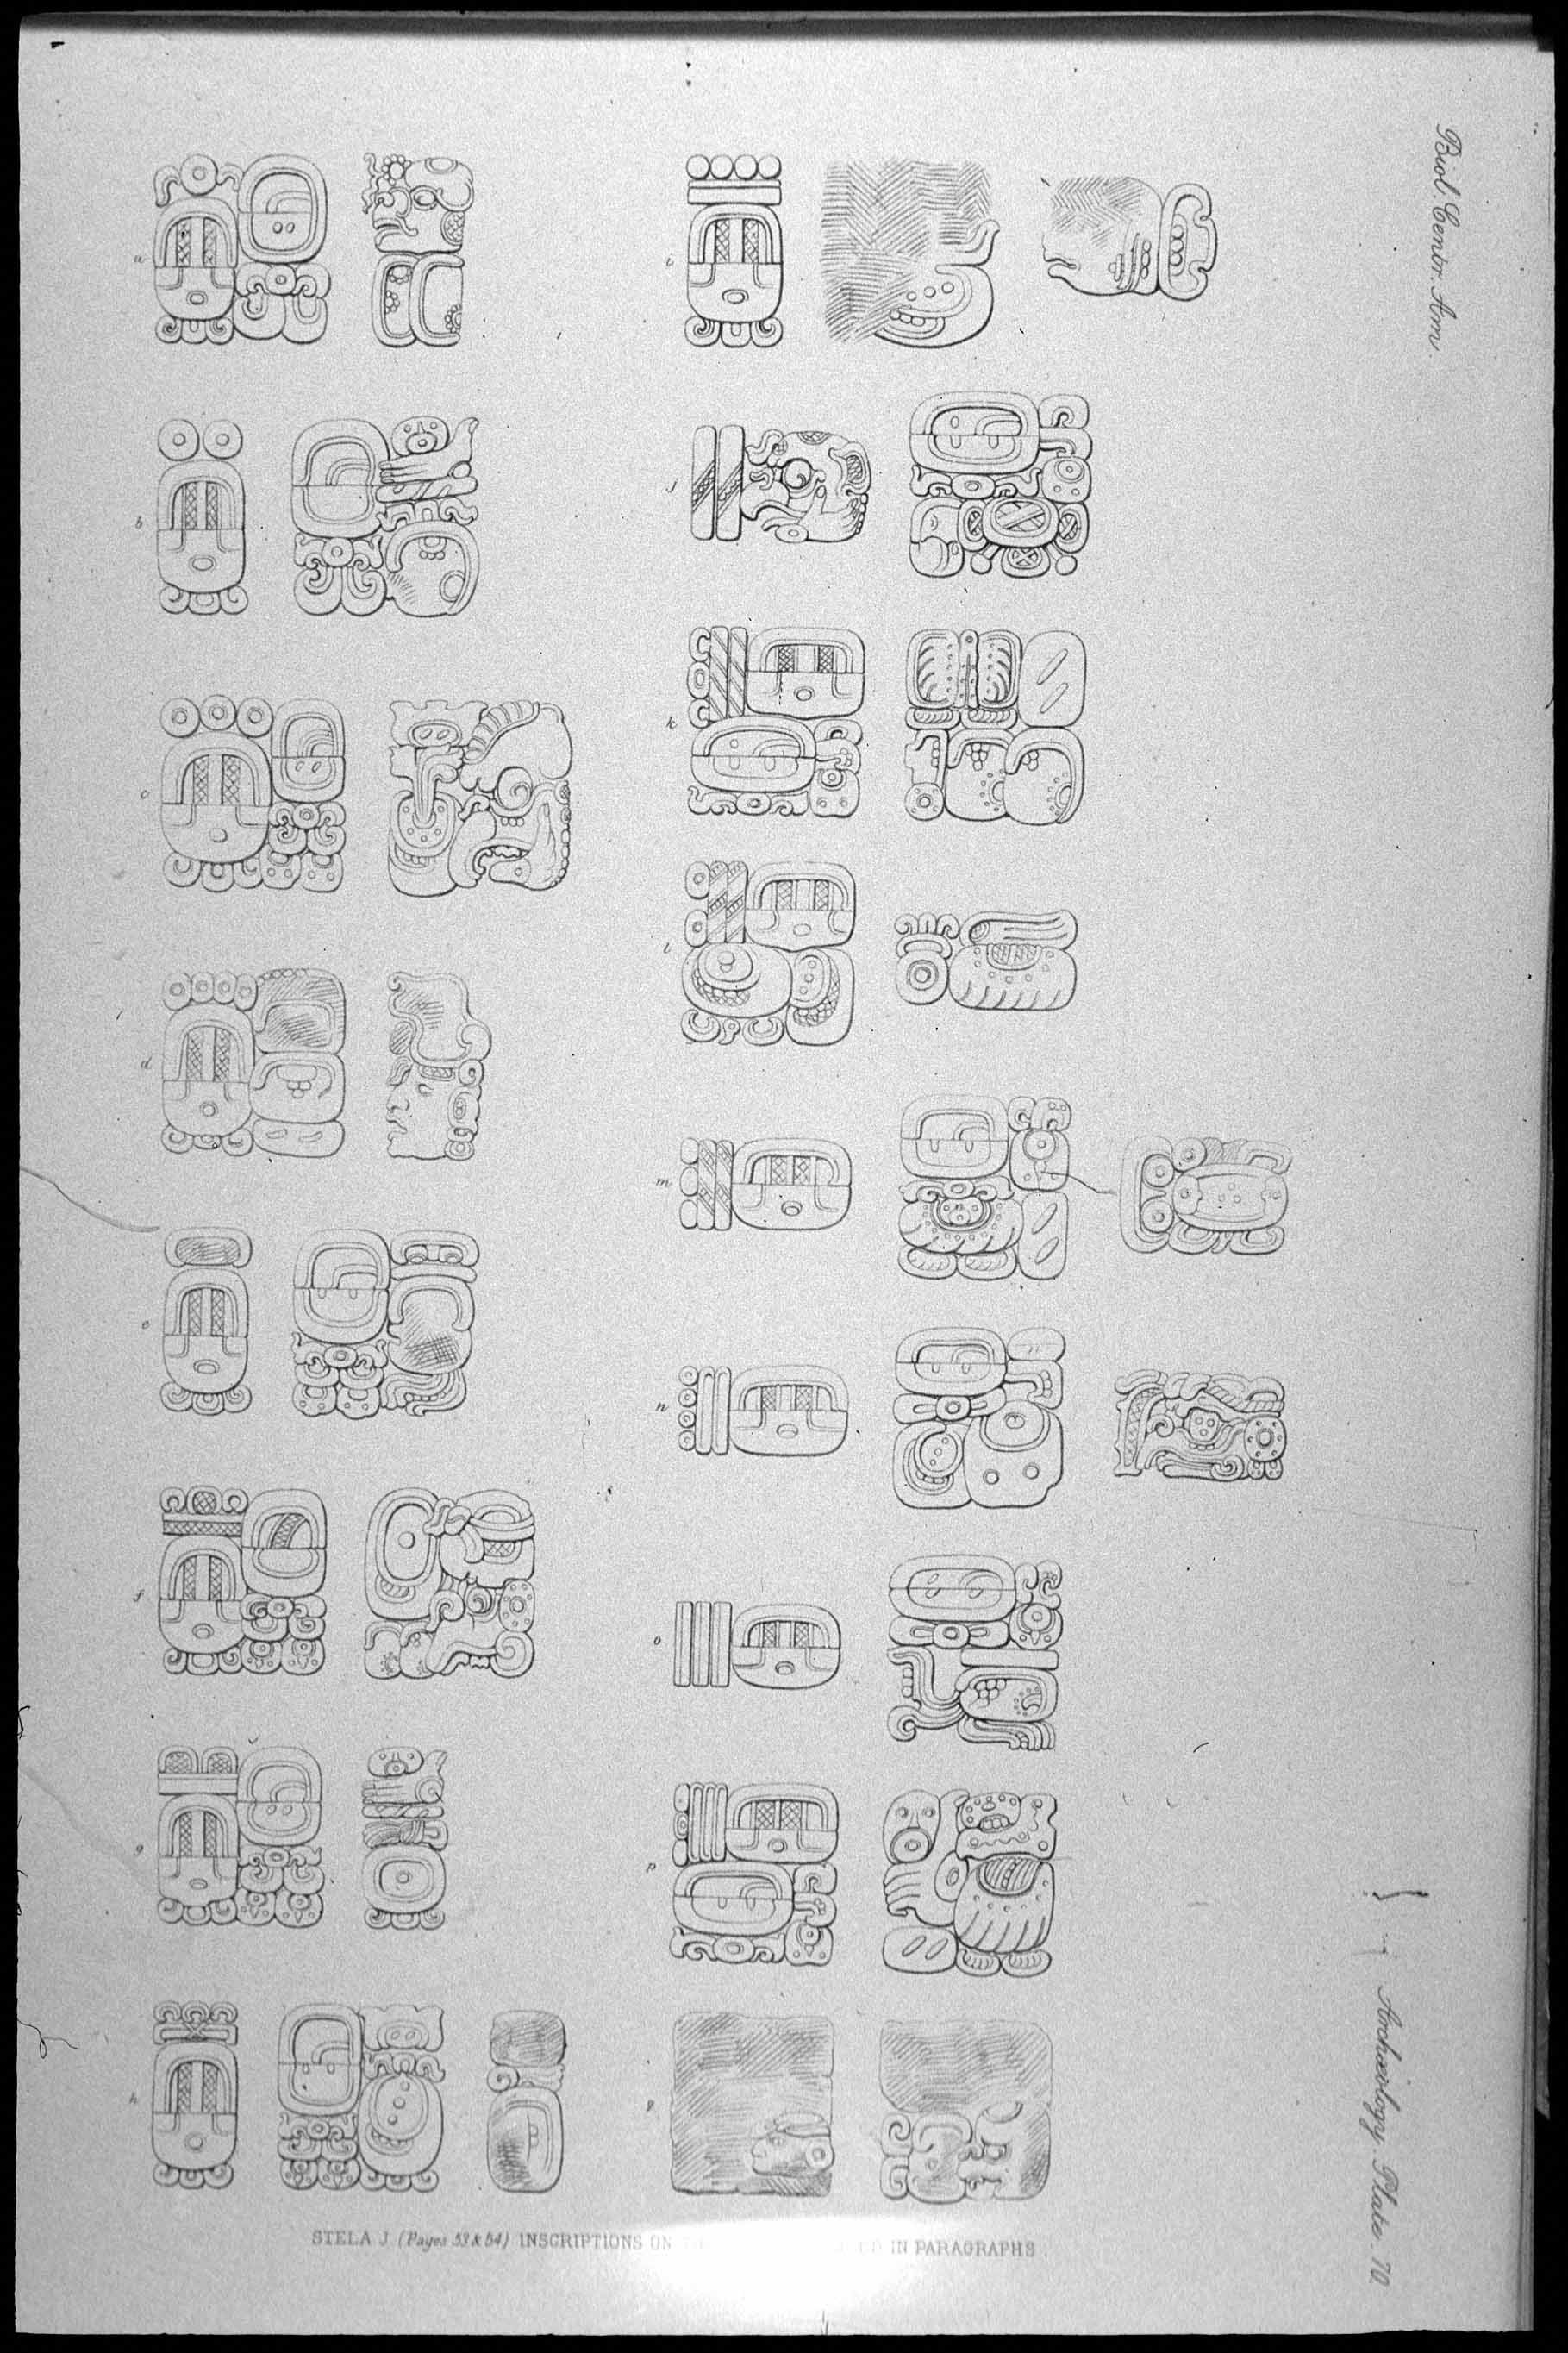 Biol. Centr. Am.
a
b
c
d
e
f
g
h
i
j
k
l
m
n
o
p
q
Archæology. Plate. 70.
STELA J (Pages 53 & 54) INSCRIPTIONS ON IN PARAGRAPHS